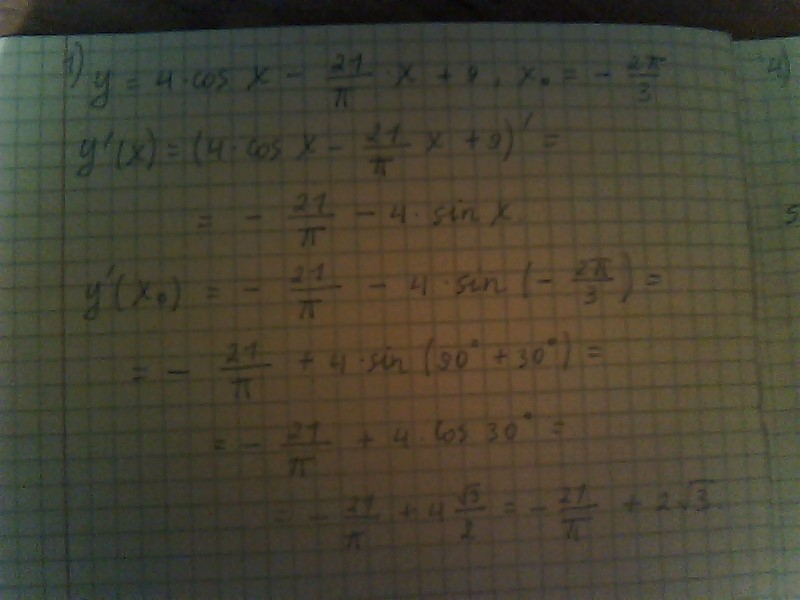 1) y = 4·cos x - 21/π · x + 9, x₀ = - 2π/3
4)
y'(x) = (4·cos x - 21/π x + 9)' =
= - 21/π - 4·sin x
5
y'(x₀) = - 21/π - 4·sin (- 2π/3) =
= - 21/π + 4·sin (90° + 30°) =
= - 21/π + 4 cos 30° =
= - 21/π + 4 √3/2 = - 21/π + 2√3